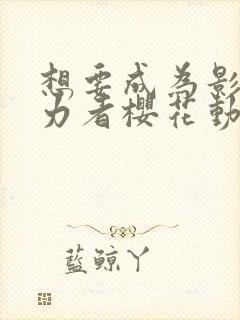 想要成為影
力者櫻花動
藍鯨丫